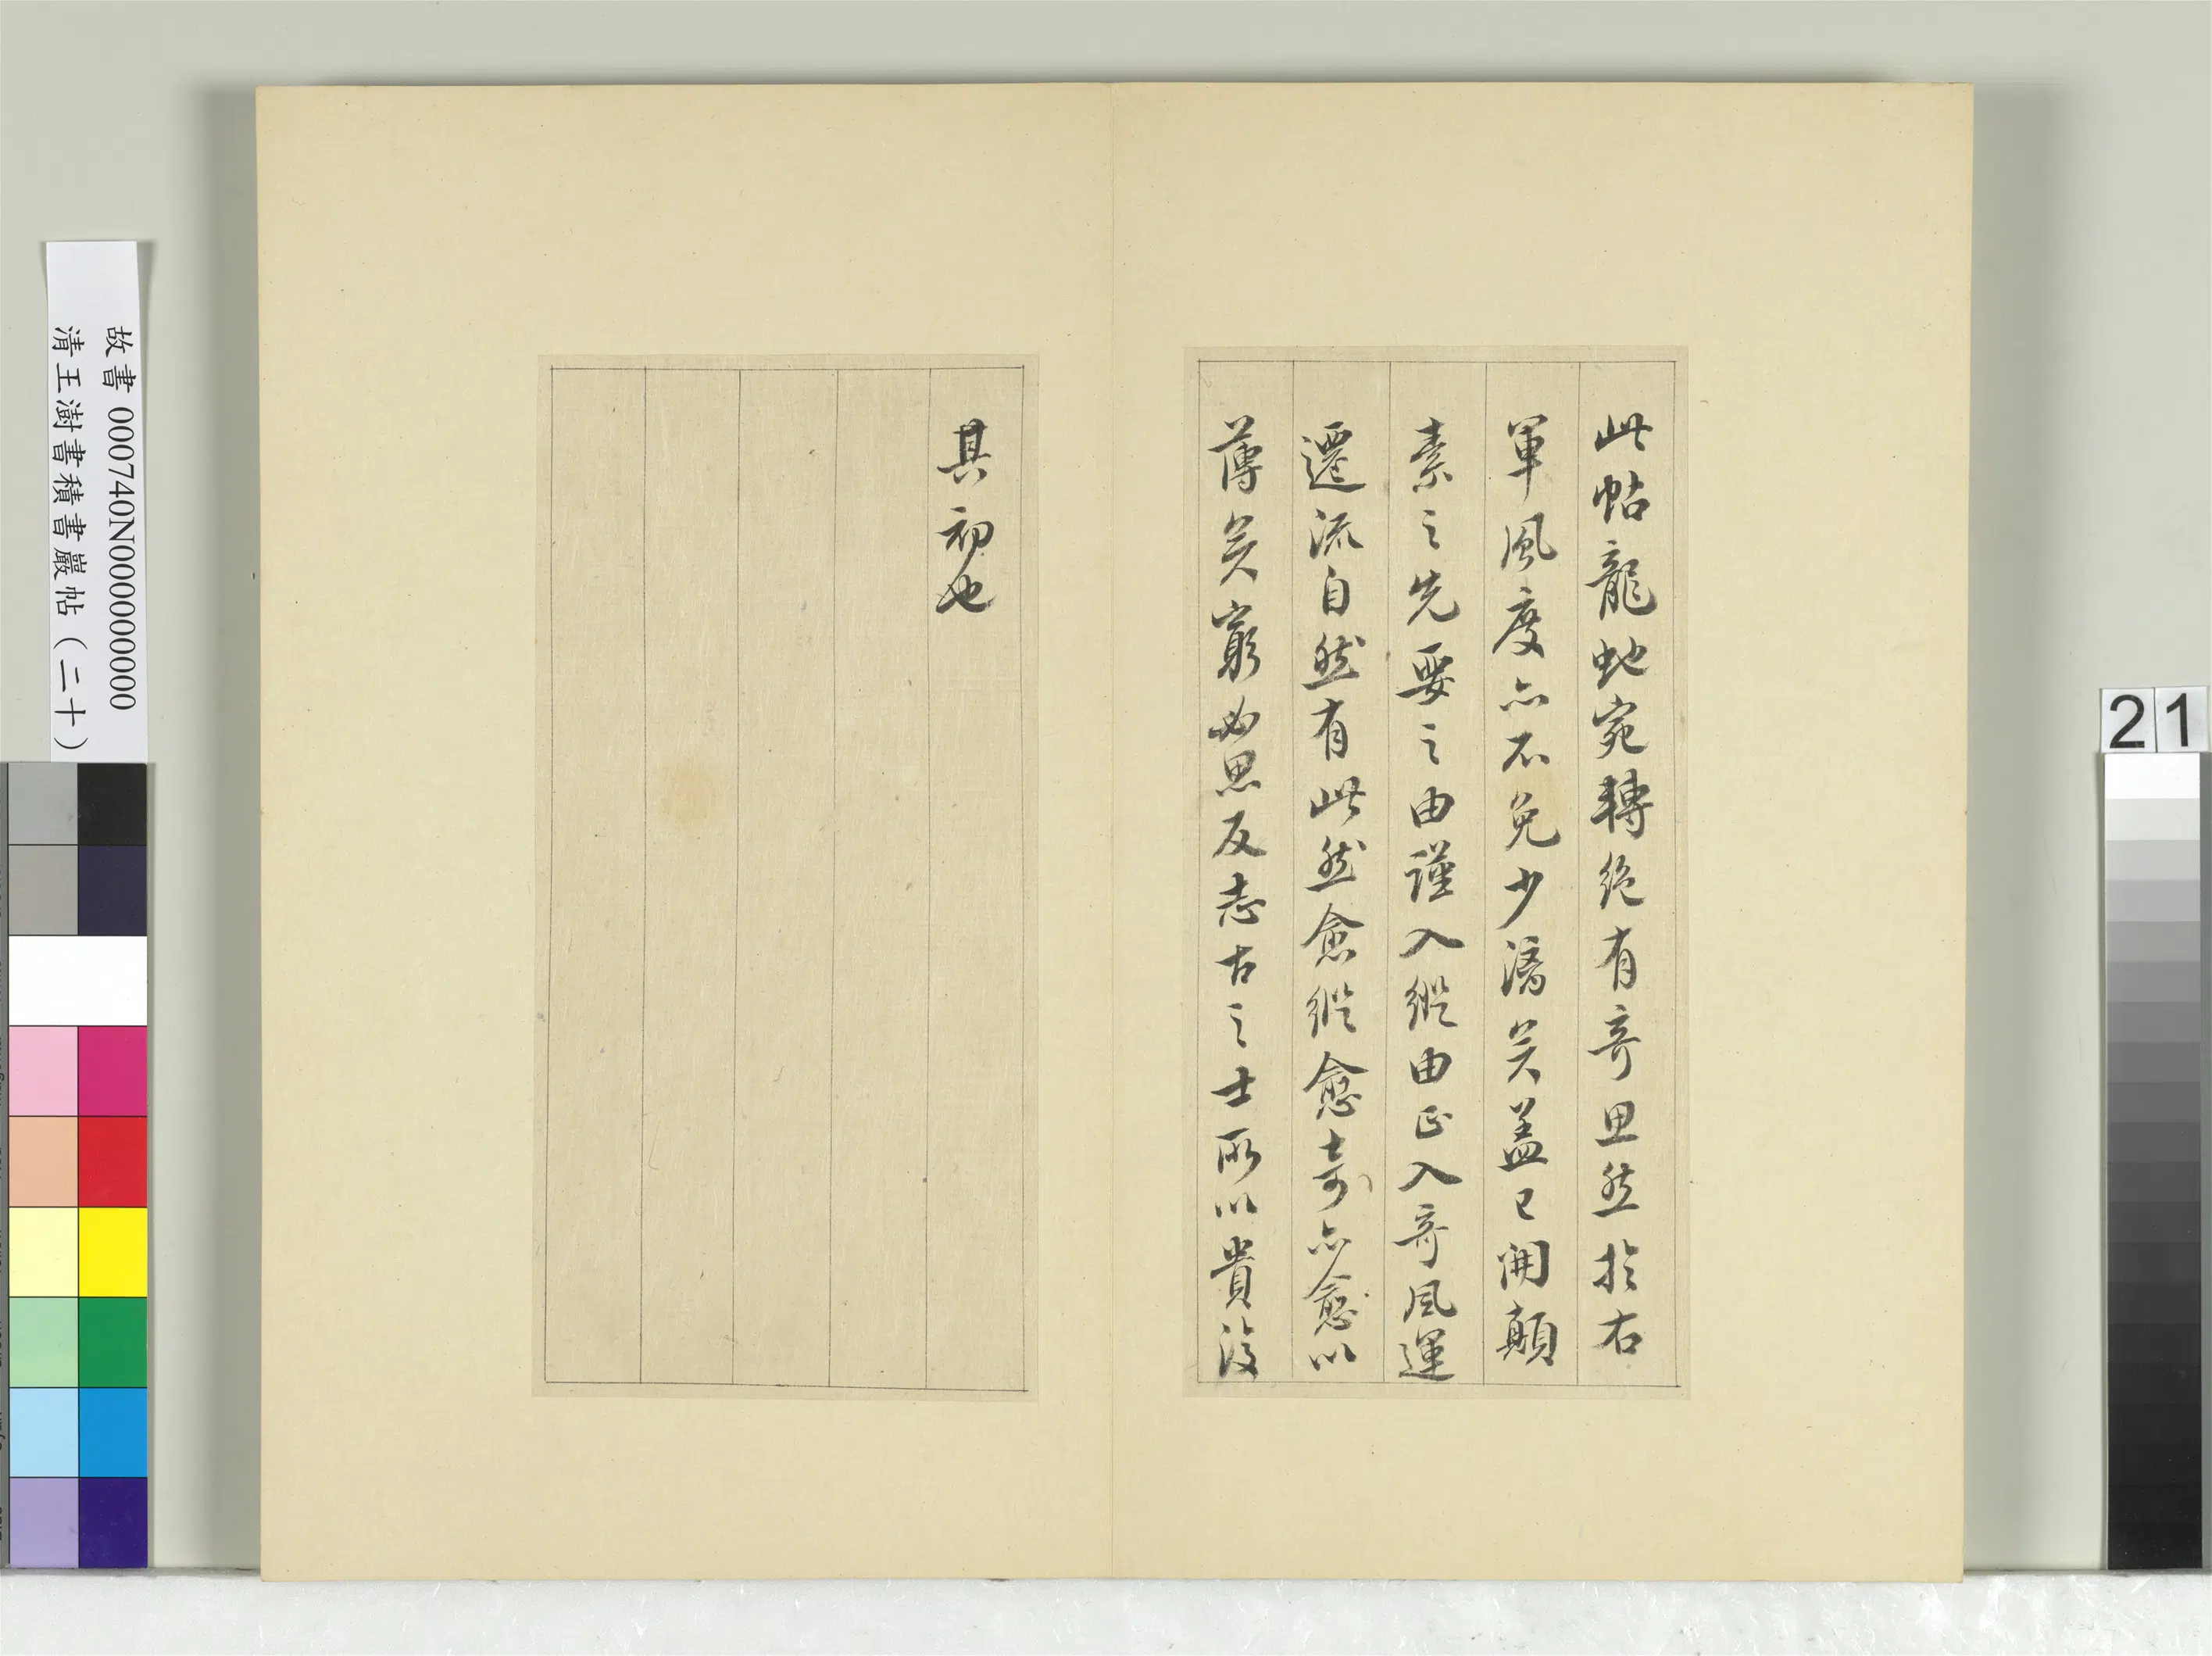 此帖龍虵宛轉絶有奇思然於右
軍風度亦不免少漓矣盖已開顛
素之先要之由謹入縱由正入奇風運
遷流自然有此然愈縱愈奇亦愈以
薄矣窮必思反志古之士所以貴復
其初也
故書 000740N000000000
清王澍書積書巖帖（二十）
21